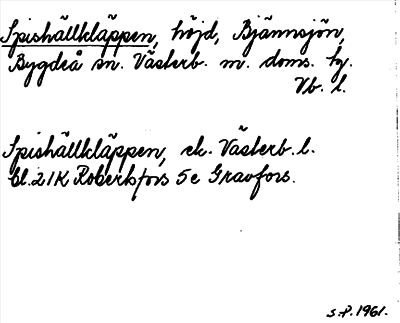 Spishällkläppen, höjd, Bjännsjön,
Bygdeå sn. Västerb. m. doms. hg.
Vb. l.
Spishällkläppen, ek. Västerb. l.
Bl. 21K Robertsfors 5e Gravfors.
S.P. 1961.